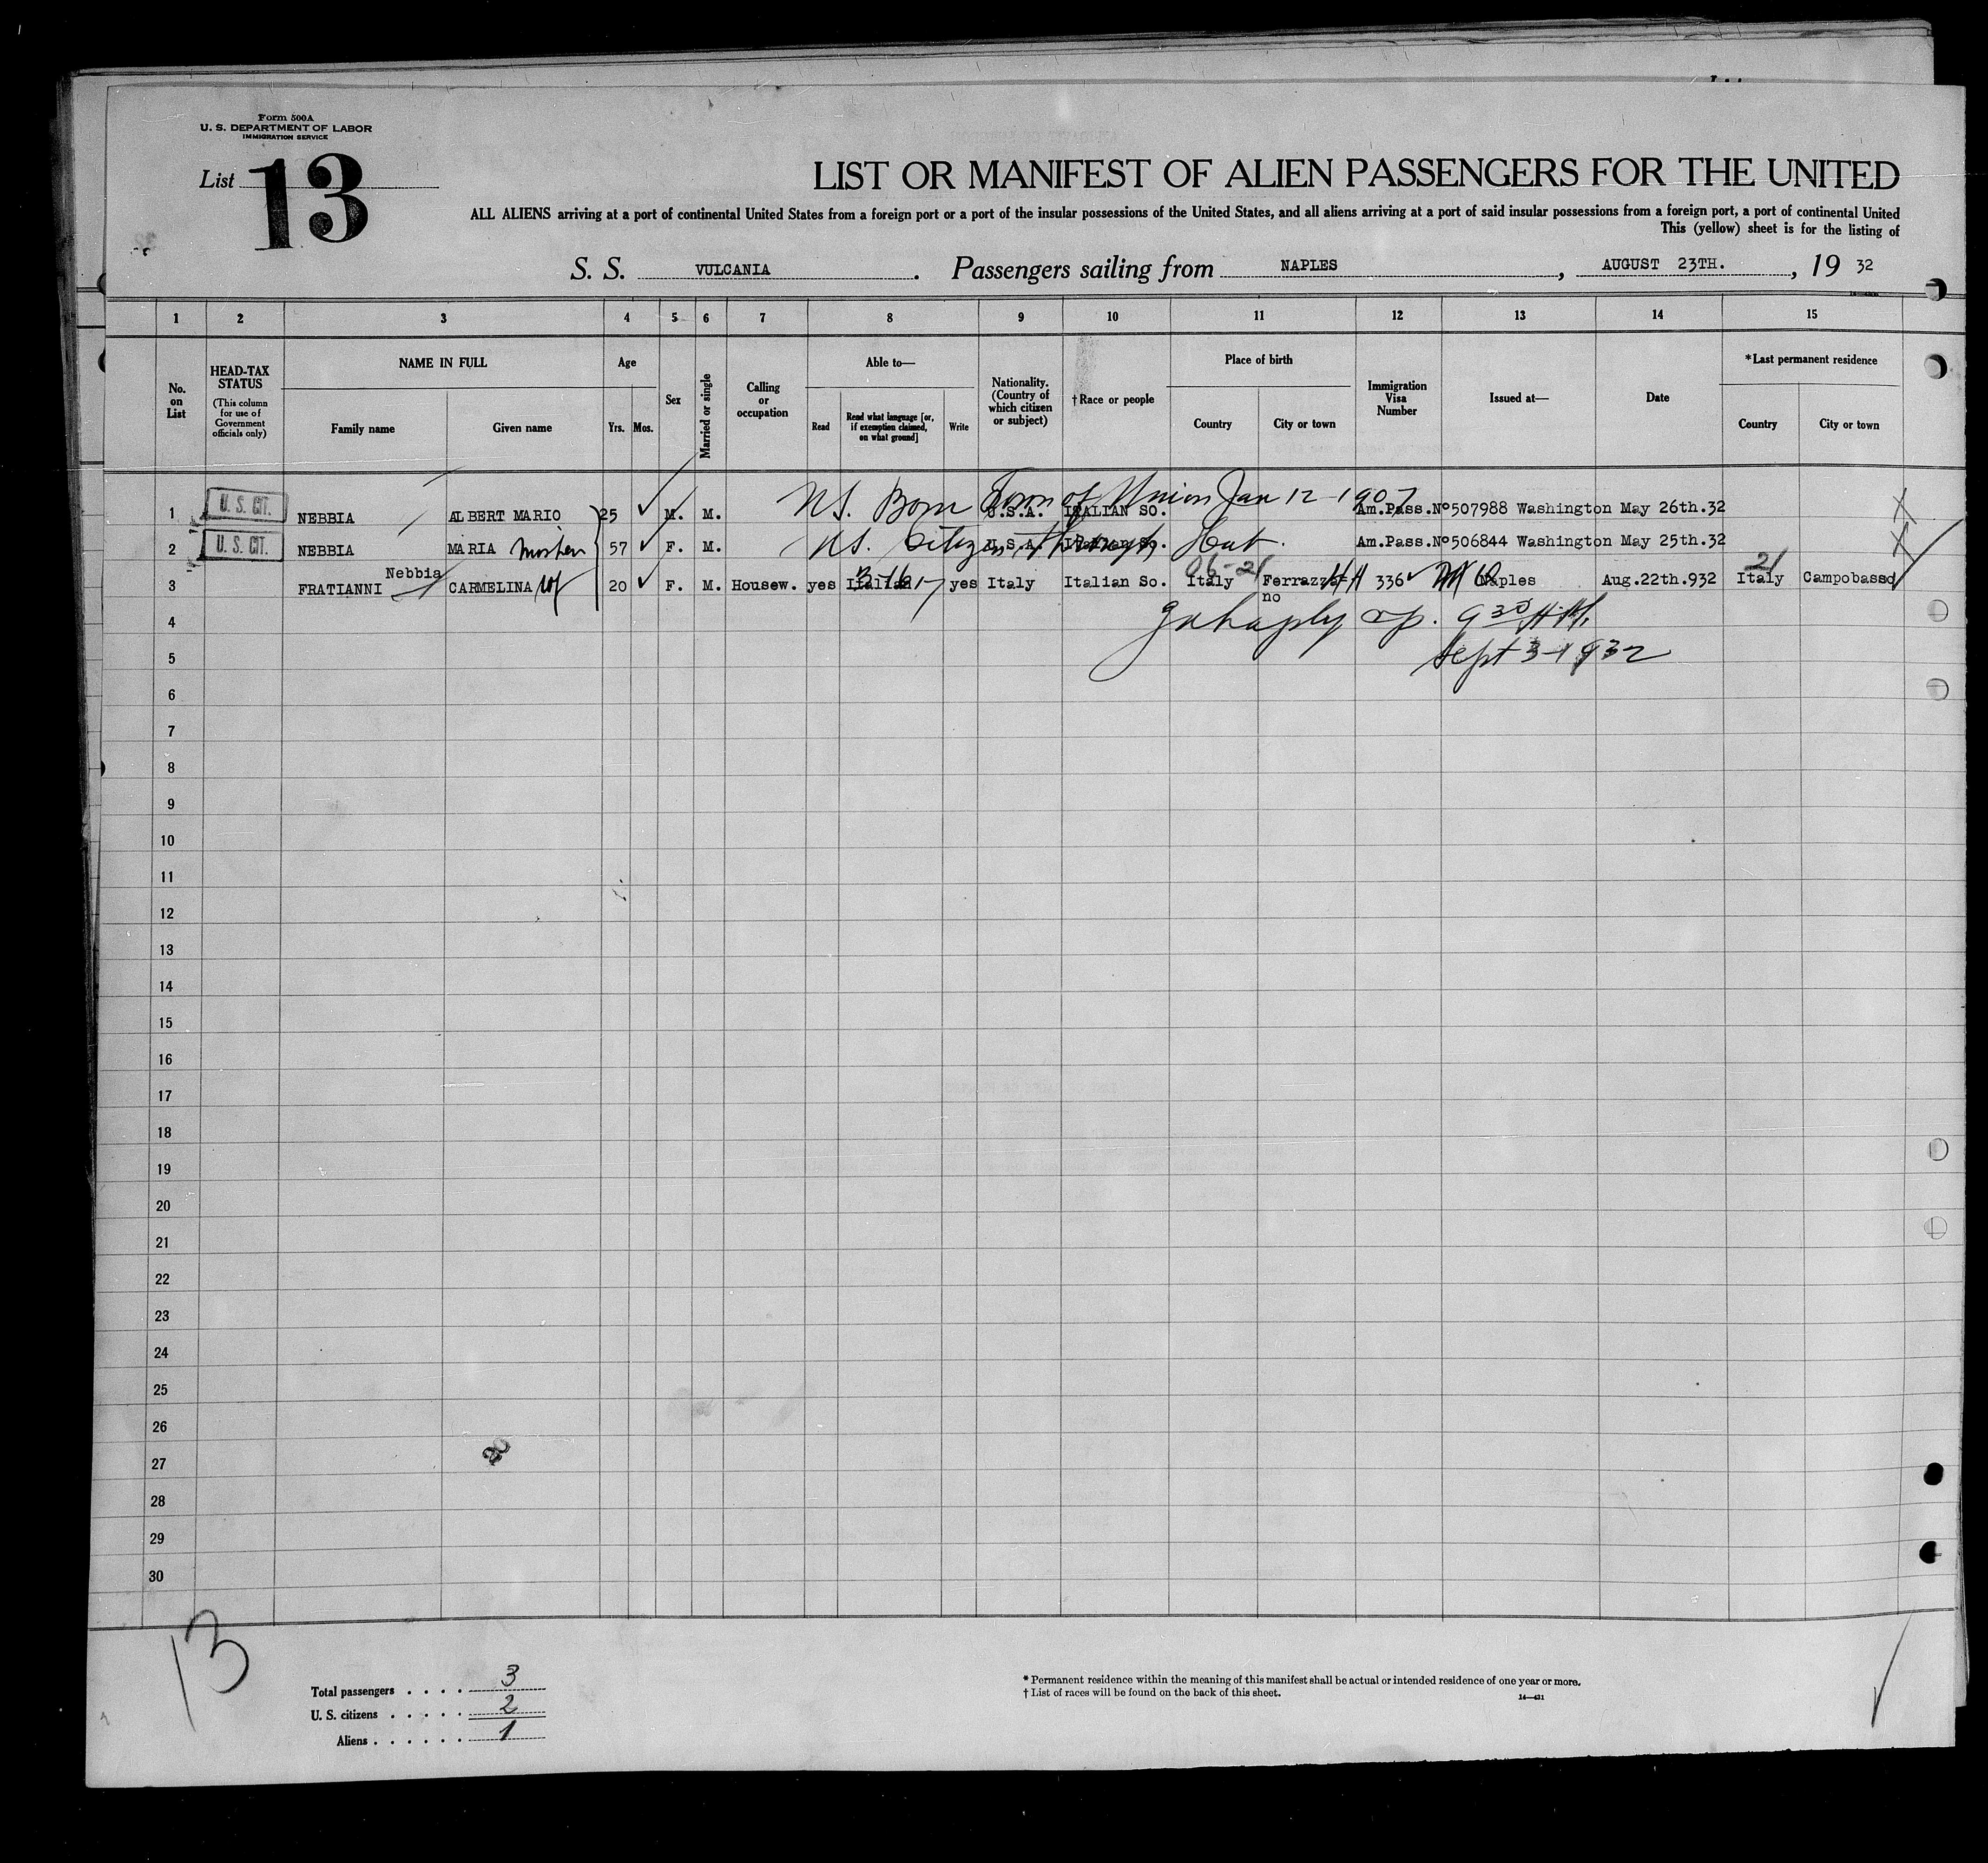 Form 500A
U. S. DEPARTMENT OF LABOR
IMMIGRATION SERVICE
List 13
LIST OR MANIFEST OF ALIEN PASSENGERS FOR THE UNITED
ALL ALIENS arriving at a port of continental United States from a foreign port or a port of the insular possessions of the United States, and all aliens arriving at a port of said insular possessions from a foreign port, a port of continental United
This (yellow) sheet is for the listing of
S. S. VULCANIA. Passengers sailing from NAPLES, AUGUST 23TH., 19 32
1 2 3 4 5 6 7 8 9 10 11 12 13 14 15
No. on List
HEAD-TAX STATUS
(This column for use of Government officials only)
NAME IN FULL
Family name
Given name
Age
Yrs.
Mos.
Sex
Married or single
Calling or occupation
Able to—
Read
Read what language [or, if exemption claimed, on what ground]
Write
Nationality. (Country of which citizen or subject)
† Race or people
Place of birth
Country
City or town
Immigration Visa Number
Issued at—
Date
*Last permanent residence
Country
City or town
U.S. Born Town of Union Jan 12-1907
1 U. S. CIT. NEBBIA ALBERT MARIO 25 M. M. U.S.A. ITALIAN SO. Am.Pass.Nº507988 Washington May 26th.32
2 U. S. CIT. NEBBIA MARIA mother 57 F. M. U.S. Citizen through U.S.A. Italian So. Am.Pass.Nº506844 Washington May 25th.32
Nebbia 06-21 21
3 FRATIANNI CARMELINA wf 20 F. M. Housew. yes Italian yes Italy Italian So. Italy Ferrazza= 336 Naples Aug.22th.932 Italy Campobasso
no
4
9 30 A.M.
5 Sept 3-1932
6
7
8
9
10
11
12
13
14
15
16
17
18
19
20
21
22
23
24
25
26
27
28
29
30
13
Total passengers . . . . 3
U. S. citizens . . . . . 2
Aliens . . . . . . 1
* Permanent residence within the meaning of this manifest shall be actual or intended residence of one year or more.
† List of races will be found on the back of this sheet.
14—431